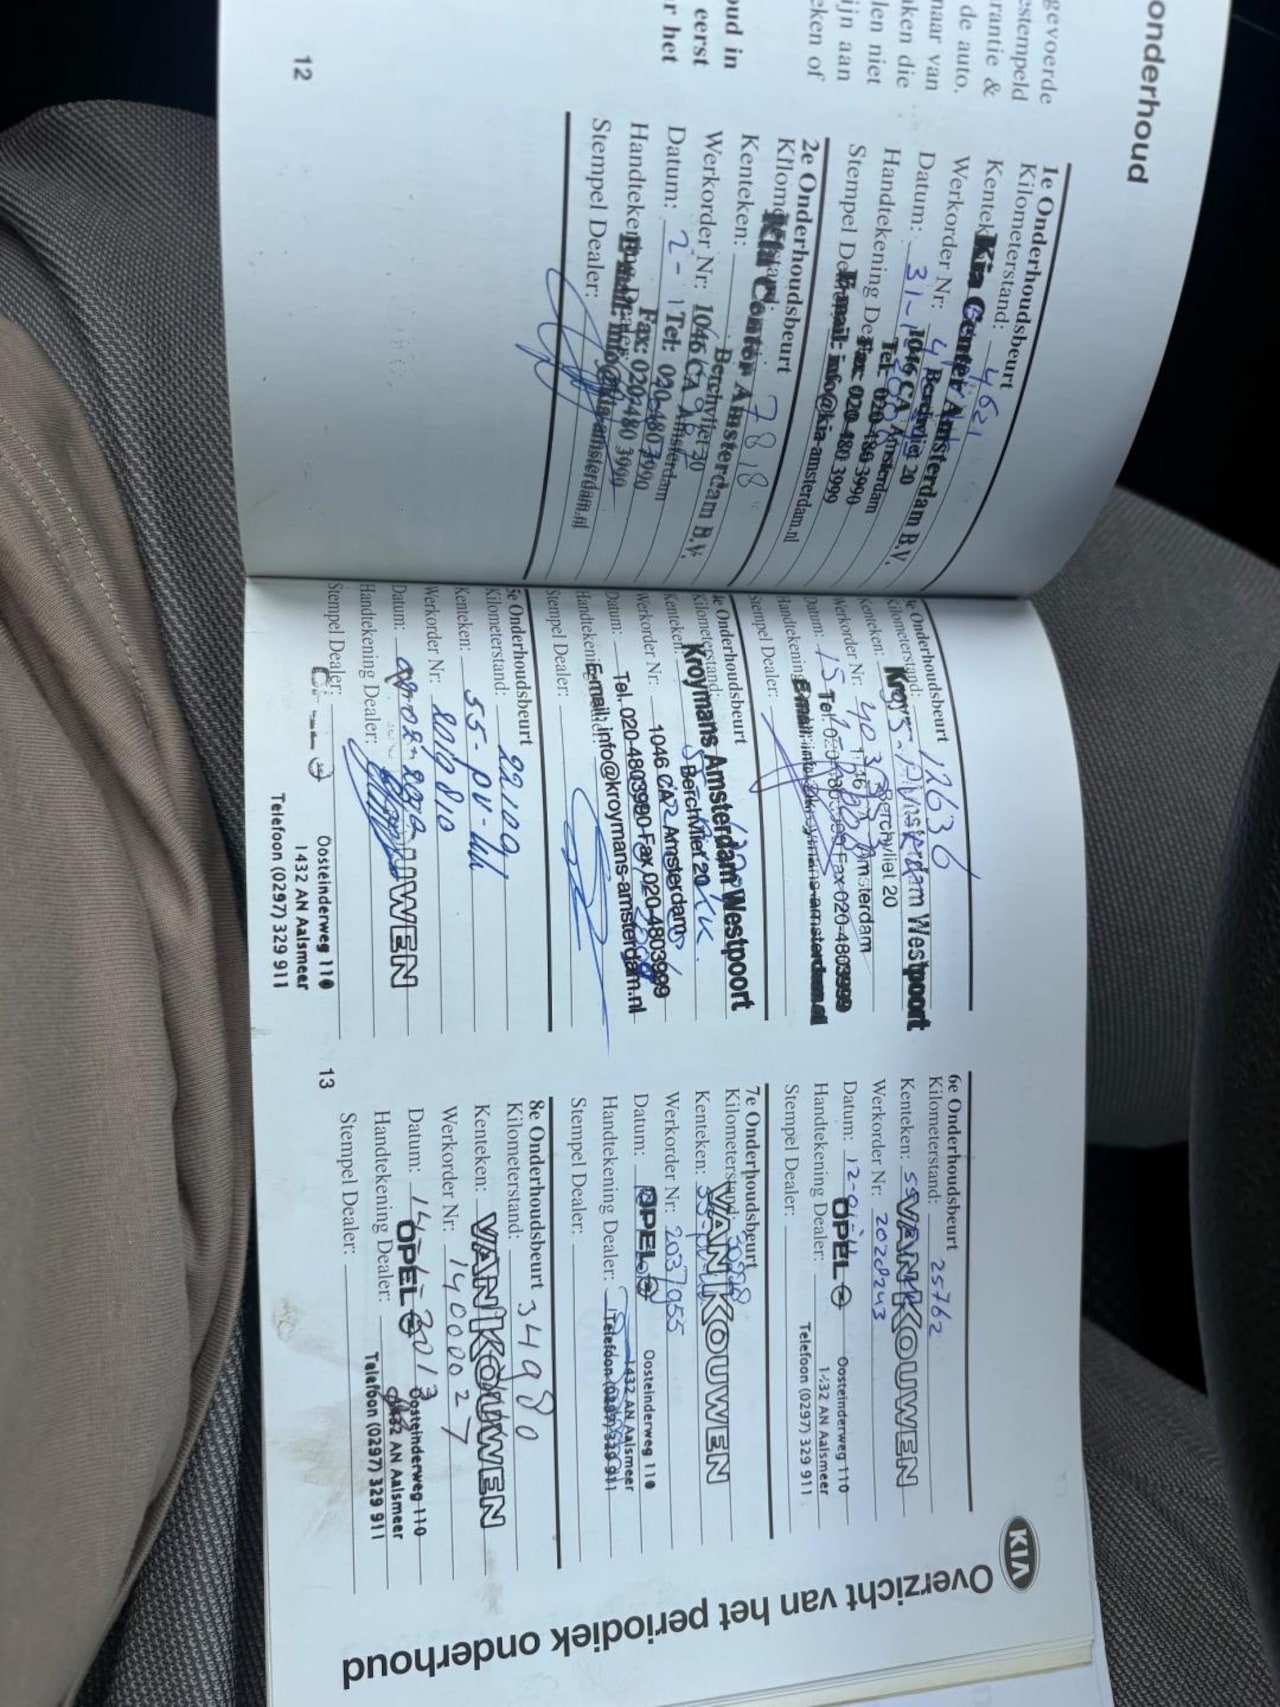 onderhoud
gevoerde
estempeld
rantie &
de auto.
naar van
ken die
len niet
ijn aan
eken of
oud in
eerst
r het
1e Onderhoudsbeurt
Kilometerstand: 4621
Kentek
Kia Center Amsterdam B.V.
Werkorder Nr:
Berchvliet 20
1046 CA Amsterdam
Datum: 31-
Tel: 020-480 3990
Handtekening De
Fax: 020-480 3999
Stempel De
E-mail: info@kia-amsterdam.nl
2e Onderhoudsbeurt
Kilom 7818
Kia Center Amsterdam B.V.
Kenteken:
Berchvliet 20
Werkorder Nr: 1046 CA Amsterdam
Datum: 2-
Tel: 020-480 3990
Fax: 020-480 3999
Handteken
E-mail: info@kia-amsterdam.nl
Stempel Dealer:
12
e Onderhoudsbeurt
Kilometerstand: 12636
Kenteken:
Kroymans Amsterdam Westpoort
Berchvliet 20
Werkorder Nr:
1046 CA Amsterdam
Datum: 15
Tel. 020-4803990 Fax 020-4803999
Handtekening
E-mail: info@kroymans-amsterdam.nl
Stempel Dealer:
4e Onderhoudsbeurt
Kilometerstand:
Kroymans Amsterdam Westpoort
Kenteken:
Berchvliet 20
Werkorder Nr:
1046 CA Amsterdam
Datum:
Tel. 020-4803990 Fax 020-4803999
Handtekening
E-mail: info@kroymans-amsterdam.nl
Stempel Dealer:
5e Onderhoudsbeurt
Kilometerstand: 22109
Kenteken: 55-PV-
Werkorder Nr: 2010810
Datum:
Handtekening Dealer:
Stempel Dealer:
Oosteinderweg 110
1432 AN Aalsmeer
Telefoon (0297) 329 911
13
6e Onderhoudsbeurt
Kilometerstand: 25762
Kenteken: 55
VAN KOUWEN
Werkorder Nr: 2020243
Datum: 12-01-
OPEL
Oosteinderweg 110
Handtekening Dealer:
1432 AN Aalsmeer
Stempel Dealer:
Telefoon (0297) 329 911
7e Onderhoudsbeurt
Kilometerstand:
VAN KOUWEN
Kenteken: 55-
Werkorder Nr: 2037955
Datum:
OPEL
Oosteinderweg 110
1432 AN Aalsmeer
Handtekening Dealer:
Telefoon (0297) 329 911
Stempel Dealer:
8e Onderhoudsbeurt
Kilometerstand: 34980
Kenteken:
VAN KOUWEN
Werkorder Nr: 1400027
Datum: 14-1-2013
OPEL
Oosteinderweg 110
1432 AN Aalsmeer
Handtekening Dealer:
Telefoon (0297) 329 911
Stempel Dealer:
KIA
Overzicht van het periodiek onderhoud